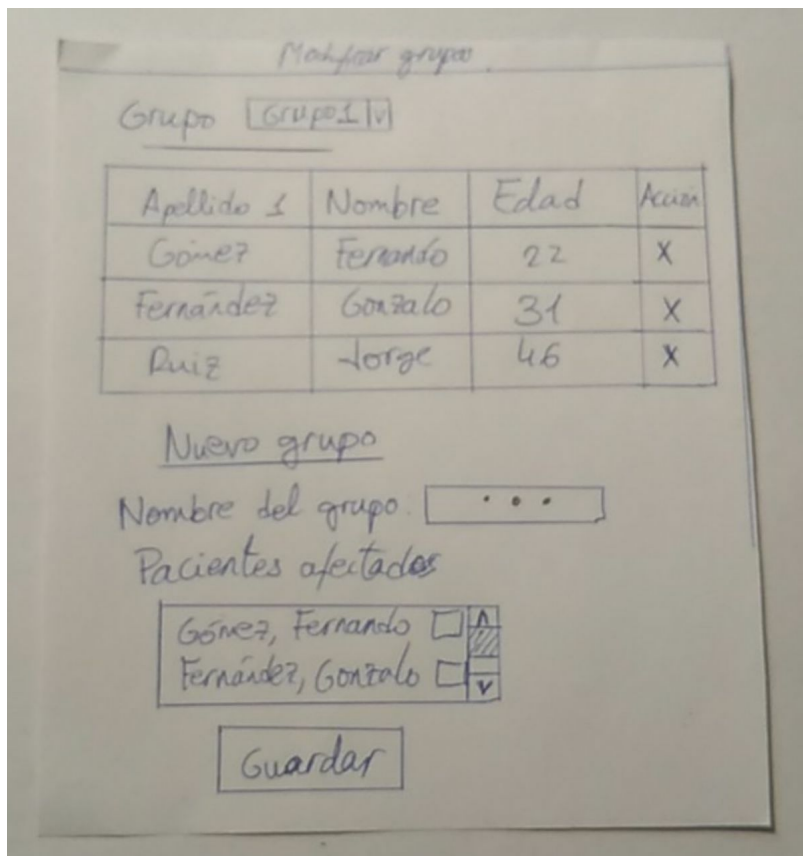 Modificar grupo
Grupo Grupo1 v
Apellido 1 Nombre Edad Acción
Gómez Fernando 22 X
Fernández Gonzalo 31 X
Ruiz Jorge 46 X
Nuevo grupo
Nombre del grupo: ...
Pacientes afectados
Gómez, Fernando
Fernández, Gonzalo
Guardar